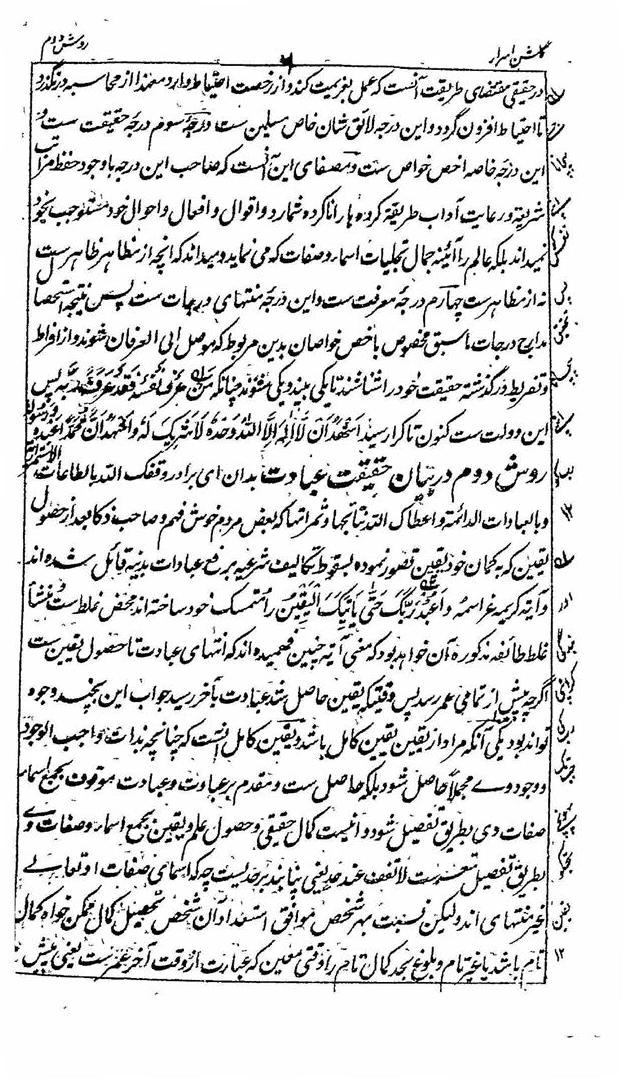 گلشن اسرار
روش دوم
در حقیقی مقتضای طریقت آنست که عمل بعزیمت کند و از رخصت احتیاط دارد و معهذا از محاسبه در نگذرد
تا احتیاط افزون گردد و این درجه لائق شان خاص مسلین ست درجهٔ سوم درجهٔ حقیقت ست و
این درجه خاصه اخص خواص ست و مصفای این آنست که صاحب این درجه با وجود حفظ مراتب
شریعة و رعایت آداب طریقة کرده ها را نا کرده شمارد و اقوال و افعال و احوال خود مستوجب بخود
نمیداند بلکه عالم را آئینهٔ جمال تجلیات اسما و صفات که می نماید و میداند که آنچه از مظاهر ظاهر ست
نه از مظاهر ست چهارم درجهٔ معرفت ست و این درجه منتهای درجات ست پس نتیجه استحصال
مدارج درجات ما سبق مخصوص باخص خواصان بدین مربوط که موصل الی العرفان شوند و از افراط
و تفریط در گذشته حقیقت خود را شناسند تا یکی بینند و یکی شوند چنانکه مَن عَرَفَ نَفسَهُ فَقَد عَرَفَ رَبَّهُ پس
این دولت ست کنون تا کرا رسد اَشهَدُ اَن لَّا اِلٰهَ اِلَّا اللهُ وَحدَهُ لَا شَرِیکَ لَهُ وَاَشهَدُ اَنَّ مُحَمَّدًا عَبدُهُ وَرَسُولُهُ
روش دوم در بیان حقیقت عبادت بدان ای برادر وفقک الله بالطاعات
و بالعبادات الدائمة و اعطاک الله نتائجها و ثمراتها که بعض مردم خوش فهم و صاحب ذکا بعد از حصول
یقین که به گمان خود یقین تصور نموده بسقوط تکالیف شرعیه بر رفع عبادات بدنیه قائل شده اند
و آیه کریمه وَاعبُد رَبَّکَ حَتّٰی یَأتِیَکَ الیَقِینُ را متمسک خود ساخته اند محض غلط ست و منشأ
غلط طائفه مذکوره آن خواهد بود که معنی آیه چنین فهمیده اند که انتهای عبادت تا حصول یقین ست
اگرچه پیش از تمامی عمر رسد پس وقتیکه یقین حاصل شد عبادت بآخر رسید جواب این بچند وجوه
تواند بود یکی آنکه مراد از یقین یقین کامل باشد و یقین کامل آنست که چنانچه بذات واجب الوجود
و وجود وے مجملاً حاصل شود بلکه حاصل ست و مقدم بر عبادت و عبادت موقوف بجمیع اسما
صفات وی بطریق تفصیل شود و اینست کمال حقیقی و حصول علم و یقین بجمیع اسما و صفات وے
بطریق تفصیل لا تقف عند حد یعنی نیایند بر حدیست چه که اسمای صفات او تعالیٰ
غیر منتهای اند ولیکن نسبت بهر شخص موافق استعداد آن شخص تحصیل کمال ممکن خواه کمال
تام باشد یا غیر تام و بلوغ بحد کمال تام را وقتی معین که عبارت از وقت آخر عمر ست یعنی پیش